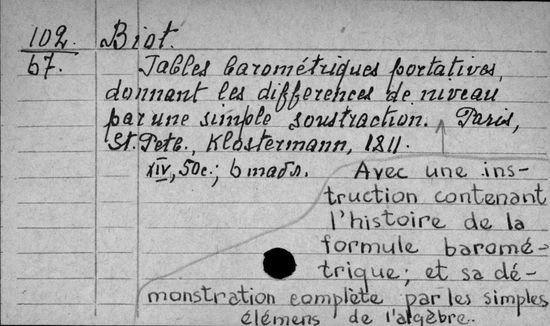 102.
67.
Biot.
Tables barométriques portatives,
donnant les differences de niveau
par une simple soustraction. Paris,
St. Petb., Klostermann, 1811.
XIV, 50c.; 6 табл.
Avec une ins-
truction contenant
l'histoire de la
formule baromé-
trique; et sa dé-
monstration complète par les simples
élémens de l'algèbre.